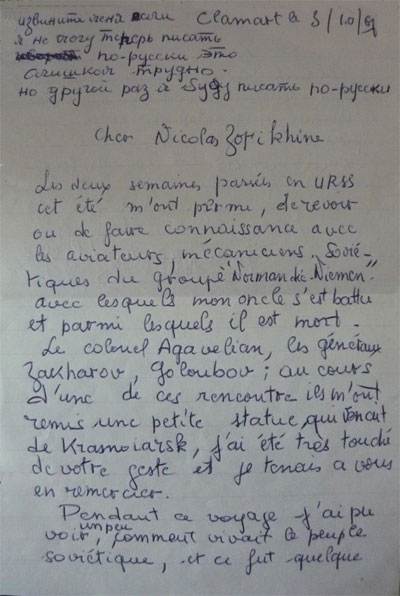 извините меня если Clamart le 3/10/
я не могу теперь писать
по-русски это
слишком трудно.
но другой раз я буду писать по-русски
Cher Nicolas Zorikhine
Les deux semaines passées en URSS
cet été m'ont permi, de revoir
ou de faire connaissance avec
les aviateurs, mécaniciens Sovié-
tiques du groupe "Normandie-Niemen"
avec lesquels mon oncle s'est battu
et parmi lesquels il est mort.
Le colonel Agavelian, les généraux
Zakharov, Goloubov ; au cours
d'une de ces rencontre ils m'ont
remis une petite statue, qui venait
de Krasnoiarsk, j'ai été très touché
de votre geste et je tenais a vous
en remercier.
Pendant ce voyage j'ai pu
voir, un peu comment vivait le peuple
soviétique, et ce fut quelque